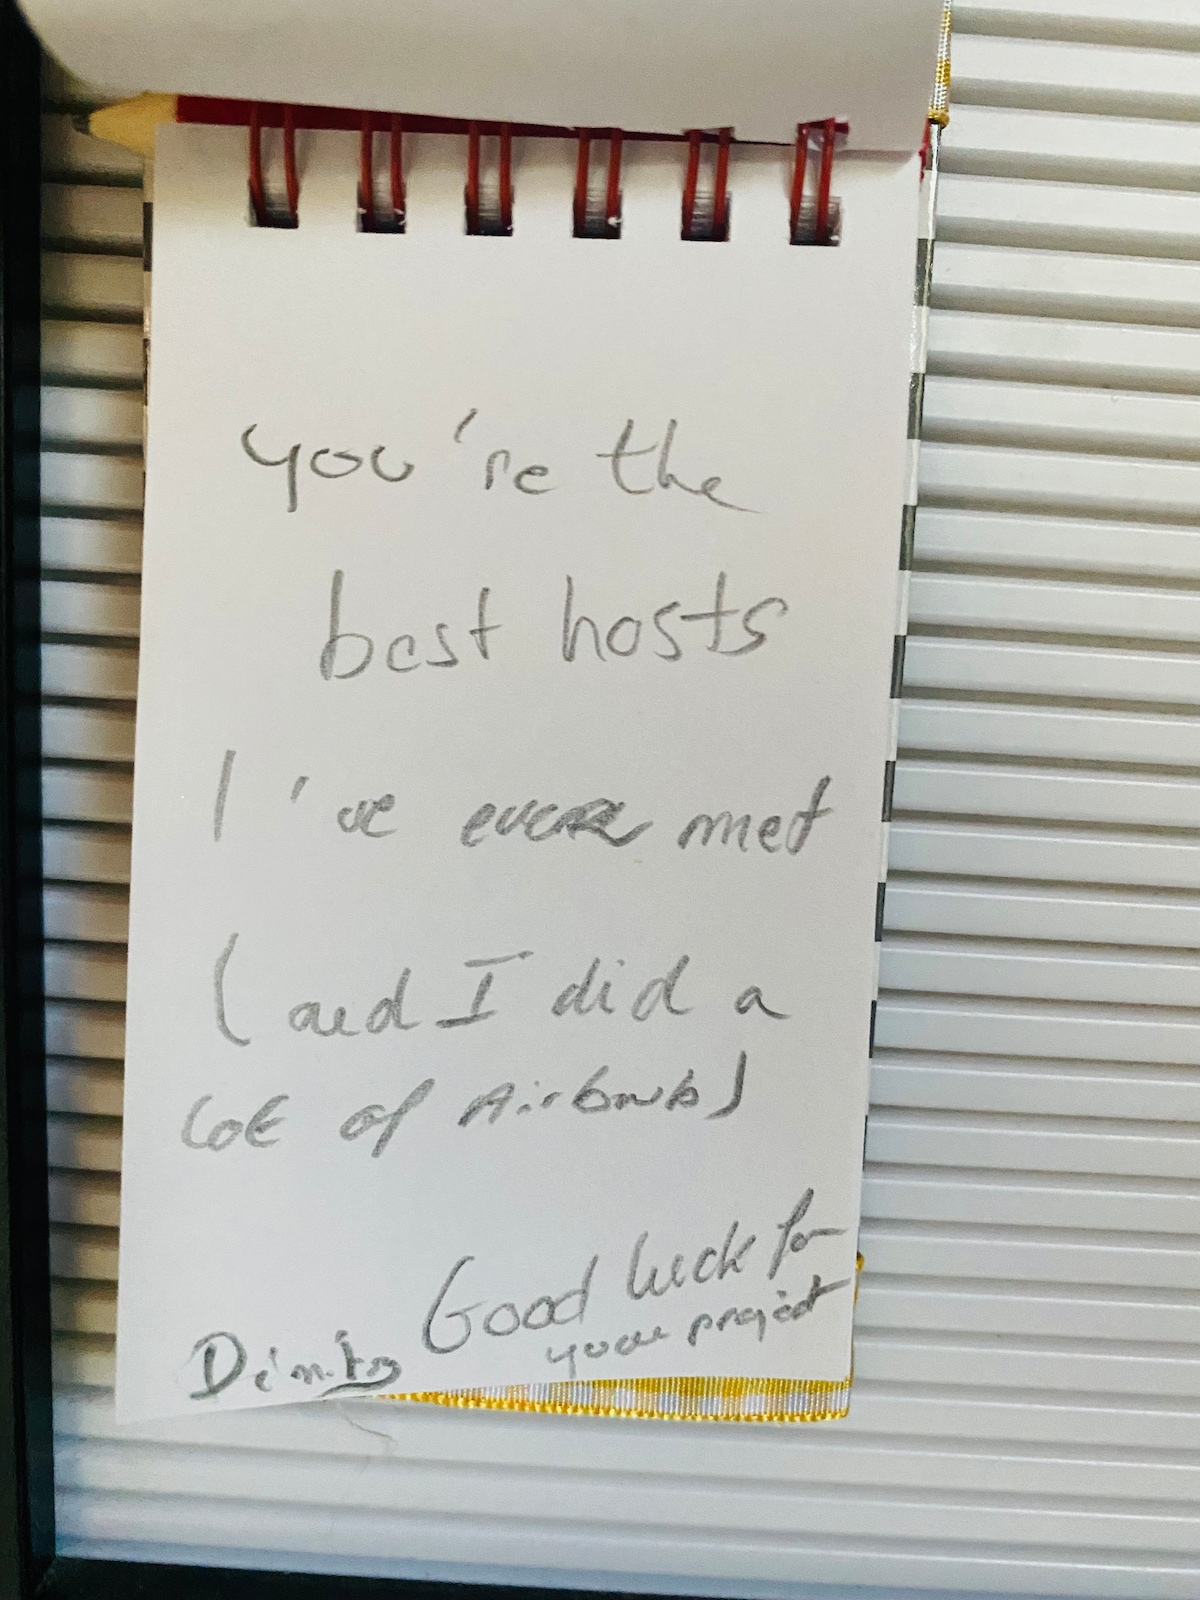 you're the
best hosts
I've ever met
(and I did a
lot of Airbnbs)
Good luck for
your project